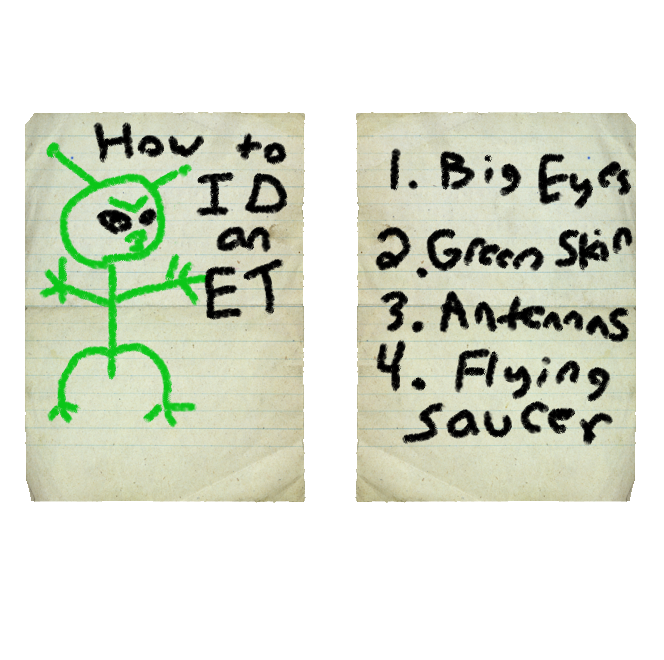 How to
ID
an
ET
1. Big Eyes
2. Green Skin
3. Antennas
4. Flying
saucer